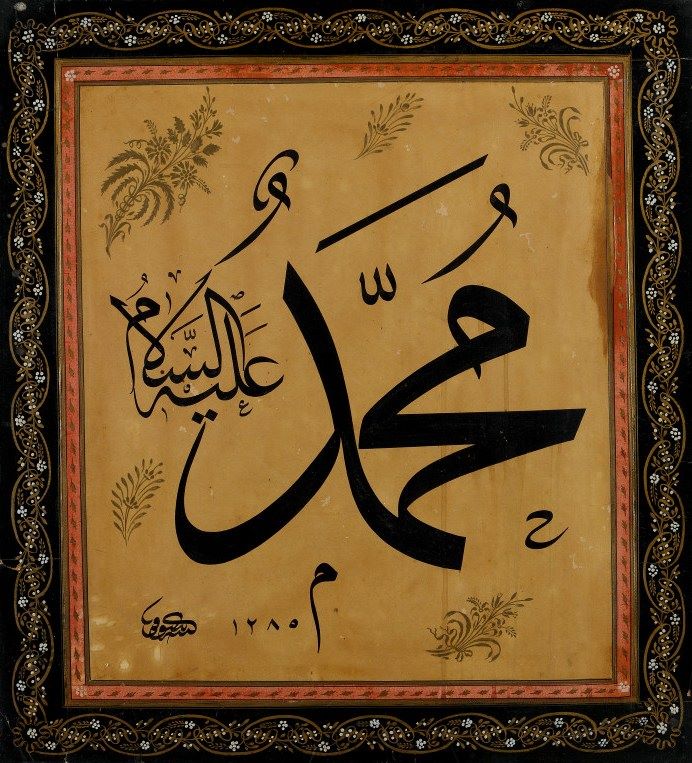 مُحَمَّدُ
عَلَيْهِ السَّلَامُ
١٢٨٥